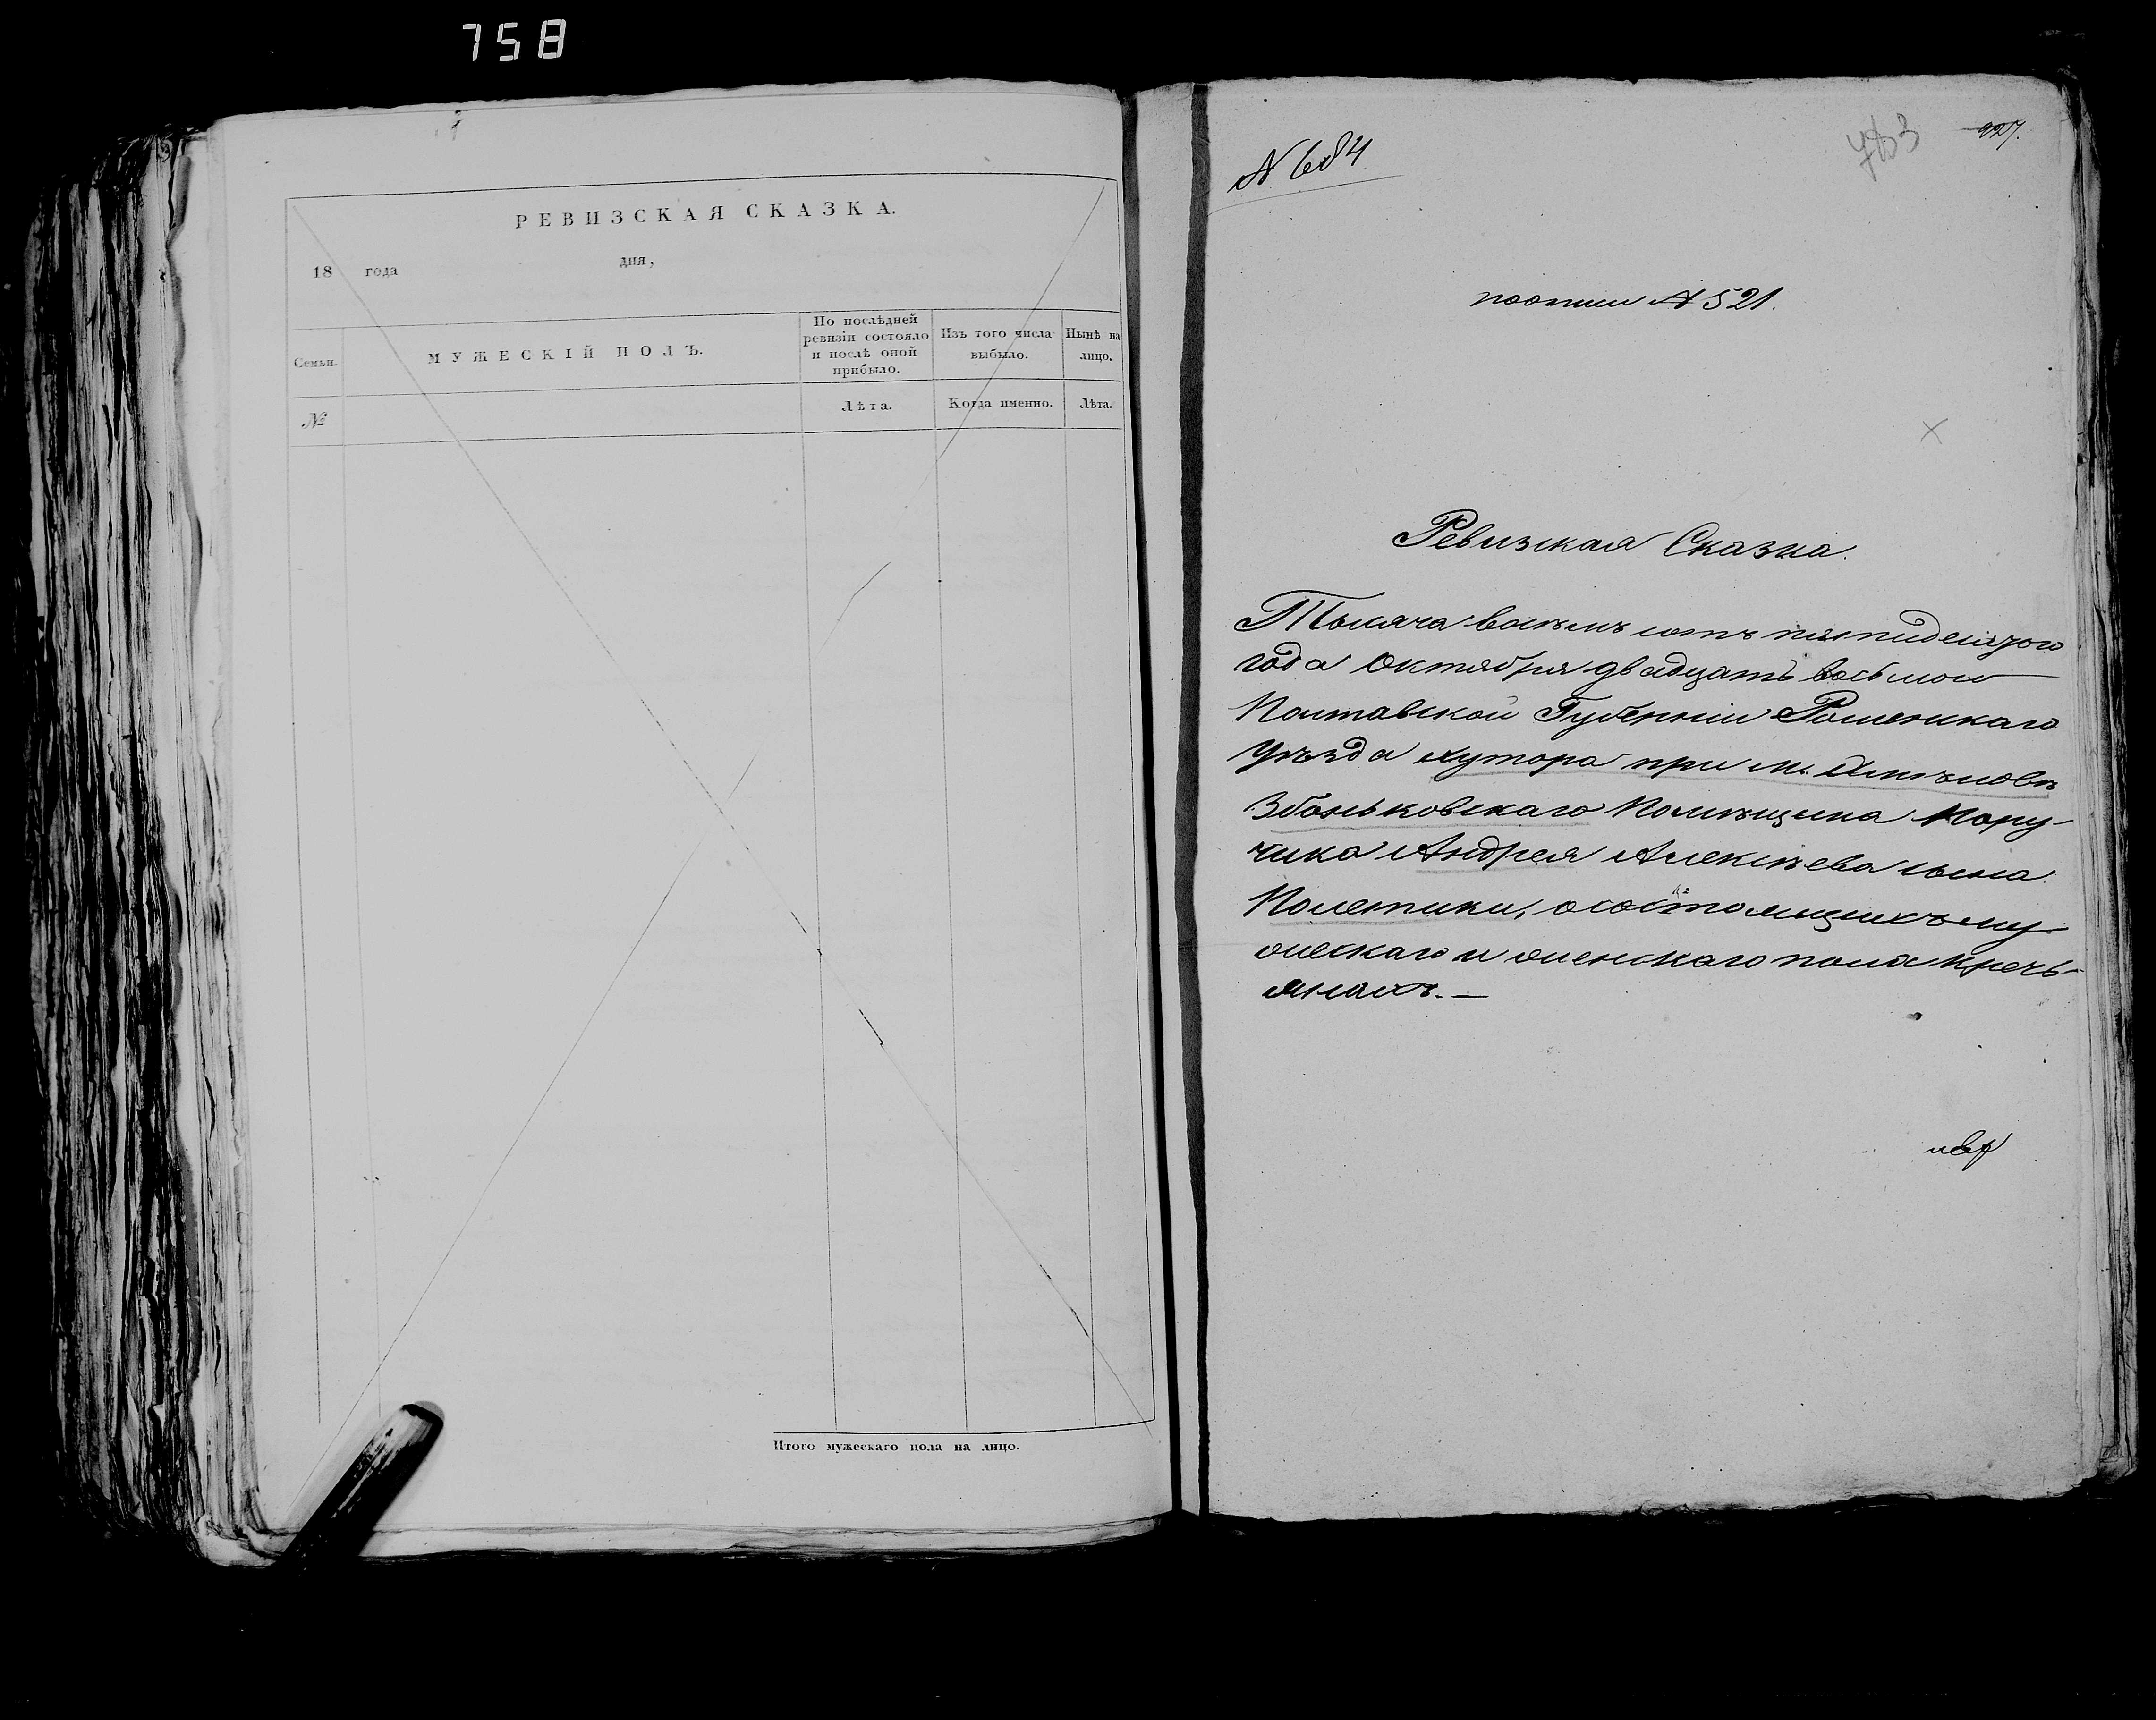 758
РЕВИЗСКАЯ СКАЗКА.
18 года дня,
Семьи.
МУЖЕСКІЙ ПОЛЪ.
По послѣдней ревизіи состояло и послѣ оной прибыло.
Изъ того числа выбыло.
Нынѣ на лицо.
№
Лѣта.
Когда именно.
Лѣта.
Итого мужескаго пола на лицо.
N 684
927.
по описи N 521.
Ревизская Сказка.
Тысяча восемь сотъ пятидесятого
года Октября двадцать восьмого
Полтавской Губерніи Роменскаго
Уѣзда хутора при м.
Помѣщика Пору-
чика Андрея Алексѣева сына
Полетики, о состоящихъ му-
жескаго и женскаго пола кресть-
янахъ.—